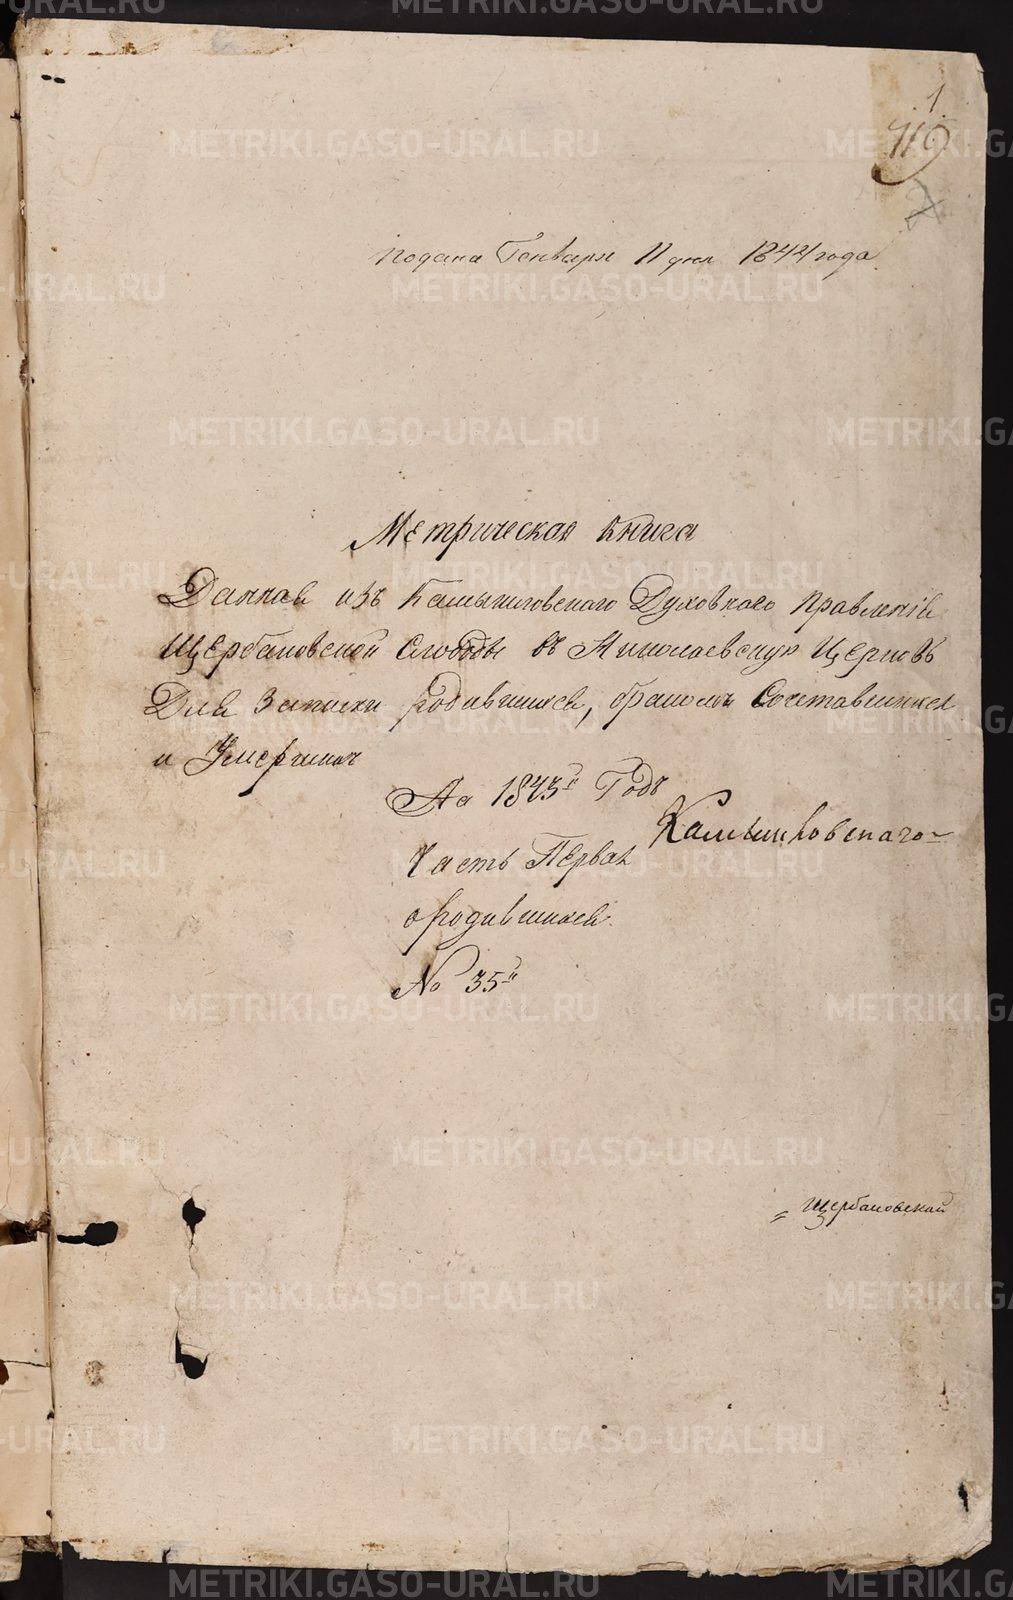 1
719
подана Генваря 11 дня 1844 года
Метрическая книга
Данная изъ Камышловскаго Духовнаго Правленія
Щербаковской Слободы въ Николаевскую Церковь
Для Записки родившихся, бракомъ Сочетавшихся
и Умершихъ
На 1843й Годъ
Камышловскаго
Часть Первая
о родившихся.
№ 35й
Щербаковской
METRIKI.GASO-URAL.RU